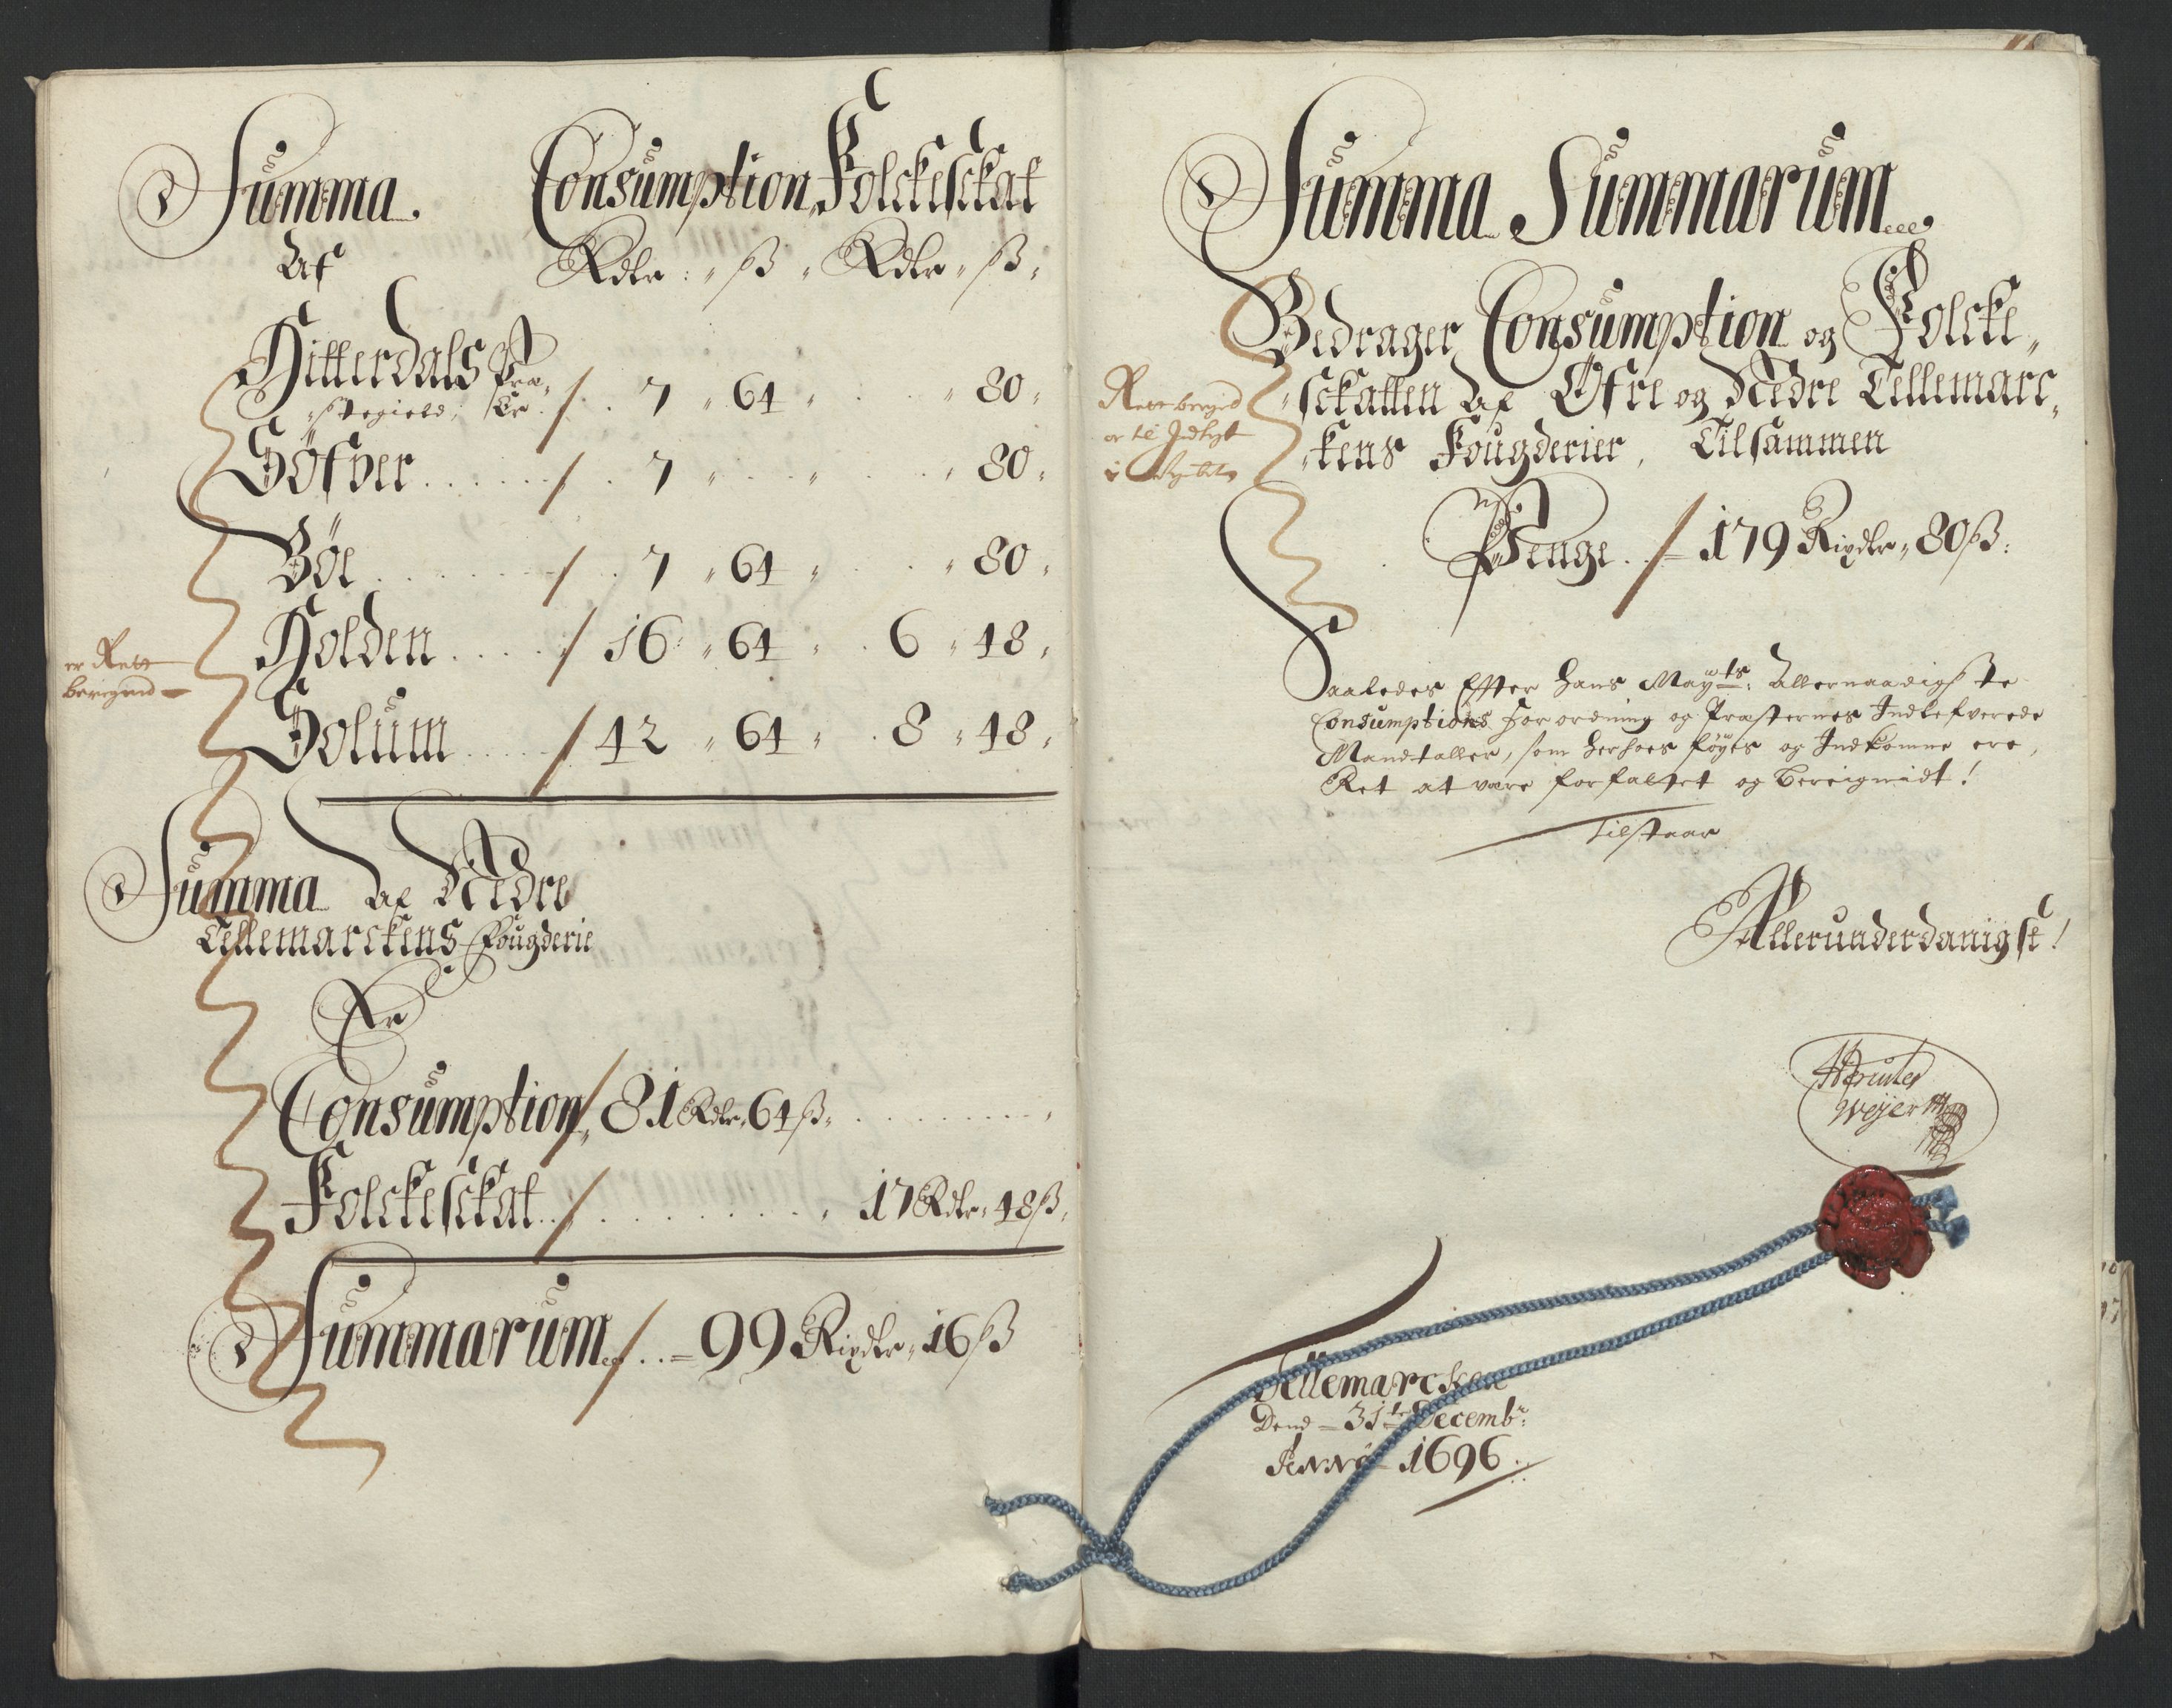 Summa. Consumption, Folckesckat
Af Rdlr: " ß " Rdlr " ß "
Hitterdals Præ=
"stegield, Er . / . 7 " 64 " . . " 80 "
Söfver . . . . . . / . 7 " . . " . . " 80 "
Böe . . . . . . . / . 7 " 64 " . . " 80 "
Holden . . . . . / 16 " 64 " . 6 " 48 "
Solum . . . . . / 42 " 64 " . 8 " 48 "
er Rett
beregned
Summa Af Nedre
Tellemarckens Fougderie
Er
Consumption, / 81 Rdlr. 64 ß.
Folckesckat . . / . . . . . . . 17 Rdlr. 48 ß.
Summarum / . . = 99 Rixdlr " 16 ß
Summa Summarum
Bedrager Consumption og Folcke=
"sckatten Af Öfre og Nedre Tellemarc=
"kens Fougderier, Tilsammen
Rett beregned
er til Indtegt
i
Penge . . / = 179 Rixdlr " 80 ß:
Saaledes Efter Hans Mayts: Allernaadigste
Consumptions Forordning og Præsternes Indlefverede
Mandtaller, som herhoes föyes og Indkomne ere,
Ret at være forfattet og bereignidt!
tilstaar
Allerunderdanigst!
Weyer
Tellemarcken
Dend = 31te Decembr:
Anno 1696